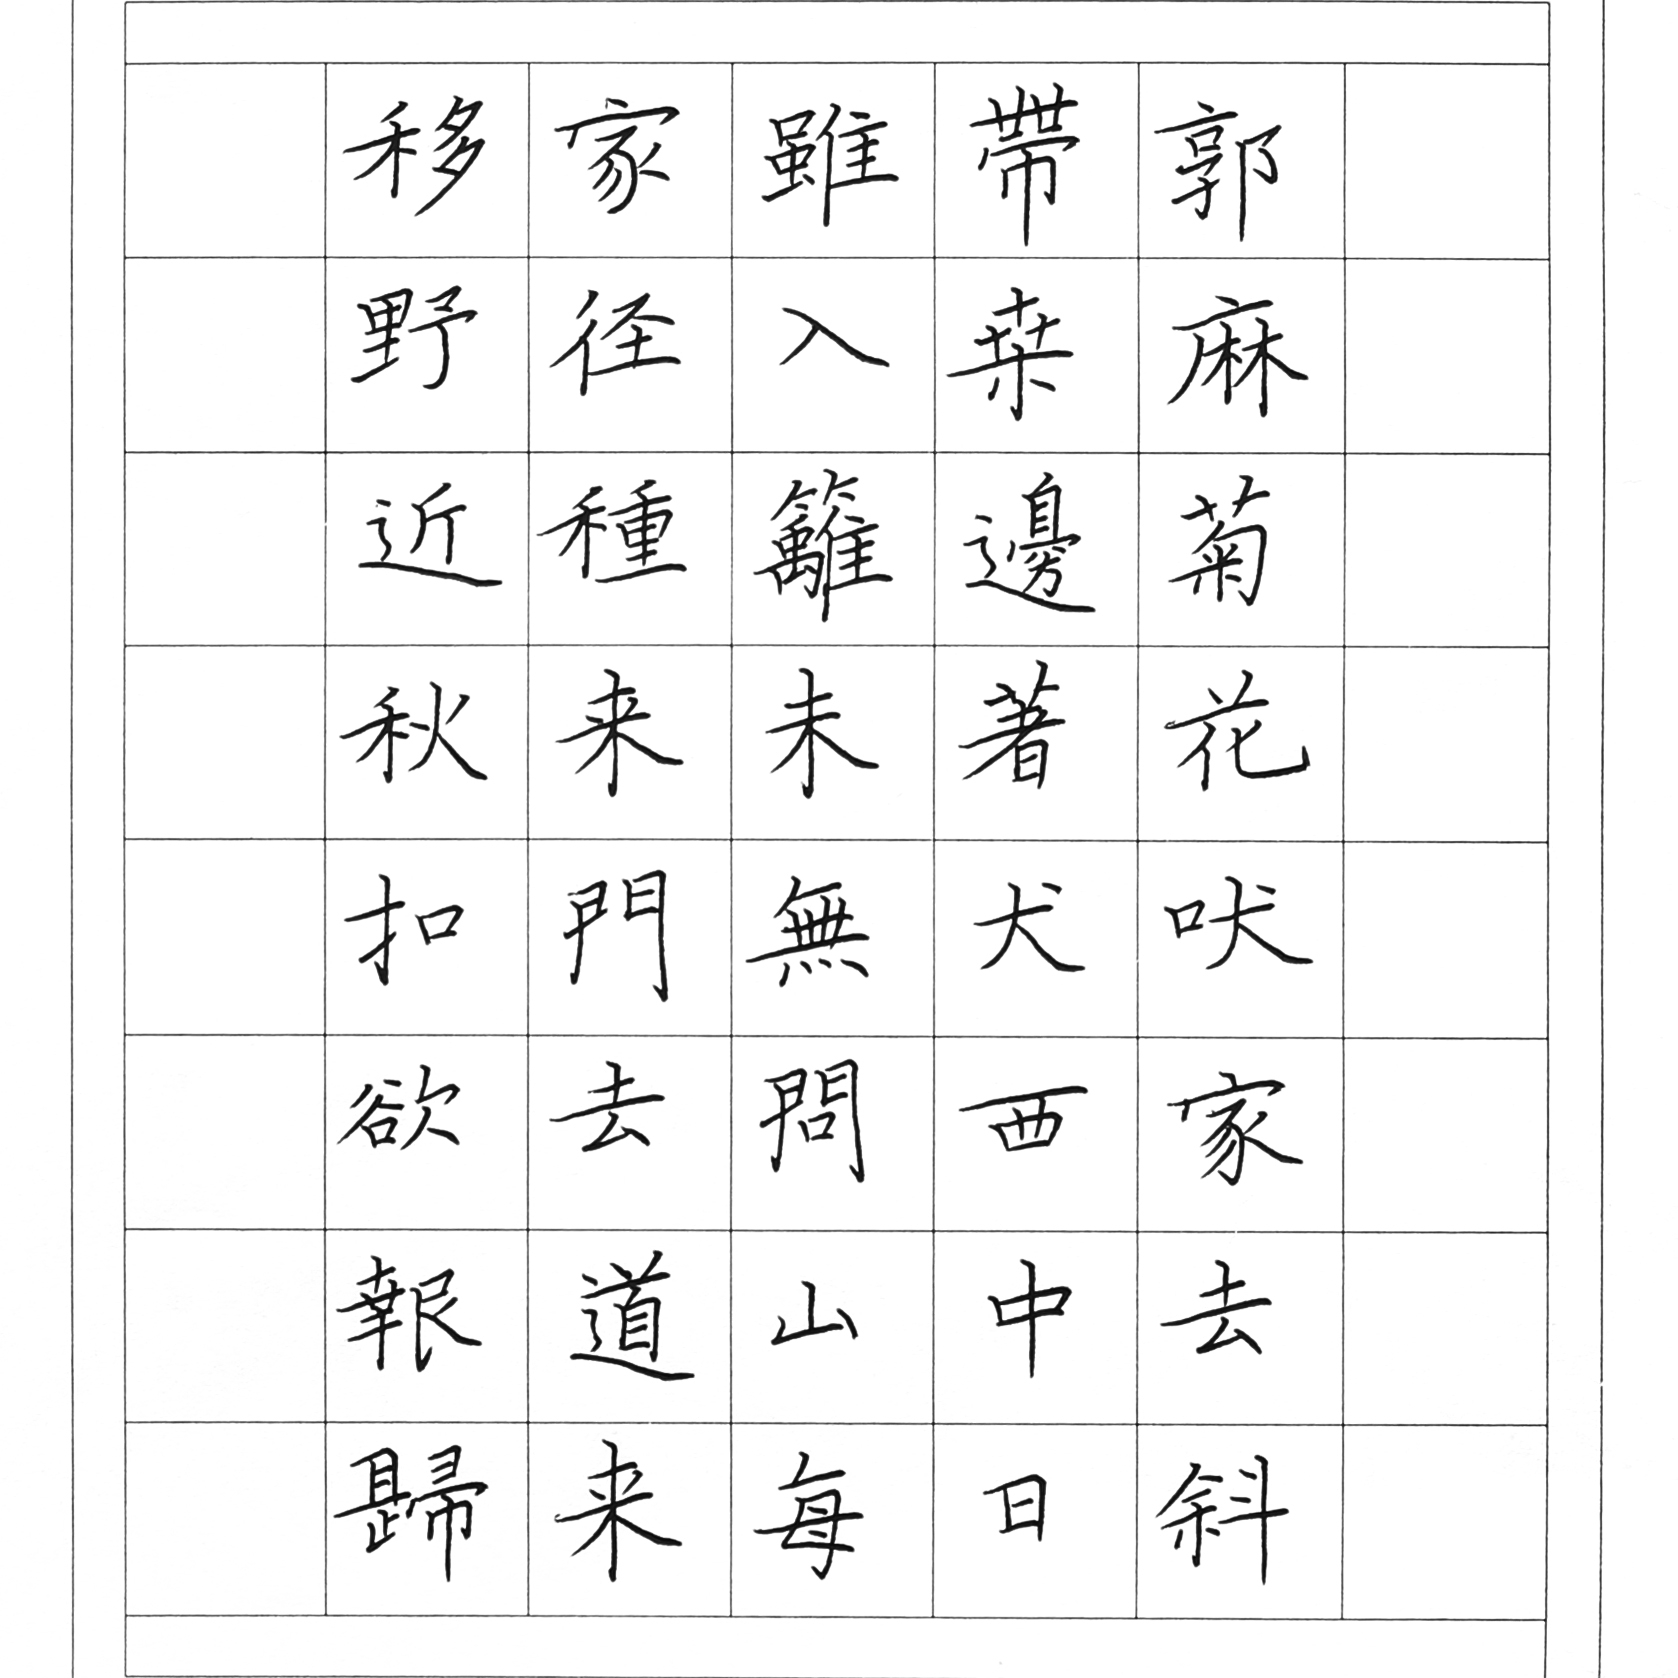 移家雖帶郭
野径入桒麻
近種籬邊菊
秋来未著花
扣門無犬吠
欲去問西家
報道山中去
歸来每日斜